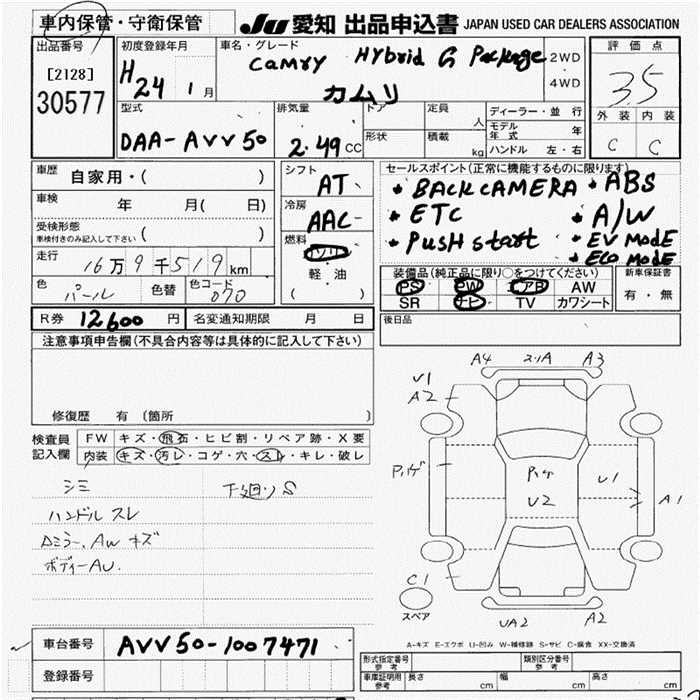 車内保管・守衛保管 JU 愛知 出品申込書 JAPAN USED CAR DEALERS ASSOCIATION
出品番号
[2128]
30577
初度登録年月
H24 1 月
車名・グレード
camry Hybrid G Package
カムリ
2WD
4WD
評価点
3.5
外装 内装
C C
型式
DAA-AVV50
排気量
2.49 CC
ドア
形状
定員
人
積載
kg
ディーラー・並行
モデル年式 年
ハンドル 左・右
車歴
自家用・( )
車検 年 月( 日)
受検形態
車検付きのみ記入して下さい ( )
走行 16万9千519 km
色 パール 色替 色コード 070
シフト
AT
冷房
AAC
燃料
ガソリン
軽・油
( )
セールスポイント(正常に機能するものに限ります)
・BACK CAMERA ・ABS
・ETC ・A/W
・Push start ・EV MODE
・ECO MODE
装備品(純正品に限り○をつけてください)
PS PW エアB AW
SR ナビ TV カワシート
新車保証書
有・無
R券 12600 円 名変通知期限 月 日
後日品
注意事項申告欄(不具合内容等は具体的に記入して下さい)
修復歴 有(箇所 )
検査員
記入欄
FW キズ・飛石・ヒビ割・リペア跡・X要
内装 キズ・汚レ・コゲ・穴・スレ・キレ・破レ
シミ 下廻りS
ハンドル スレ
Dミラー、AW キズ
ボディーAU.
A4 スリA A3
U1
A2
U2
U1
A1
C1
スペア
UA2 A2
A-キズ E-エクボ U-凹み W-補修跡 S-サビ C-腐食 XX-交換済
車台番号 AVV50-1007471
登録番号
形式指定番号
参考
類別区分番号
参考
車庫証明用
参考
長さ cm 幅 cm 高さ cm